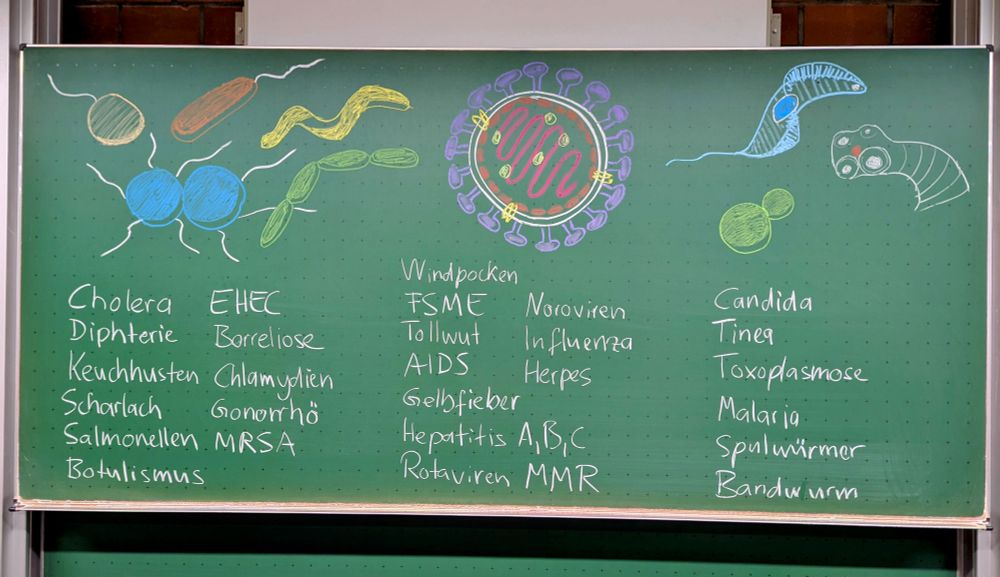 Cholera
Diphterie
Keuchhusten
Scharlach
Salmonellen
Botulismus
EHEC
Borreliose
Chlamydien
Gonorrhö
MRSA
Windpocken
FSME
Tollwut
AIDS
Gelbfieber
Hepatitis A,B,C
Rotaviren
Noroviren
Influenza
Herpes
MMR
Candida
Tinea
Toxoplasmose
Malaria
Spulwürmer
Bandwurm